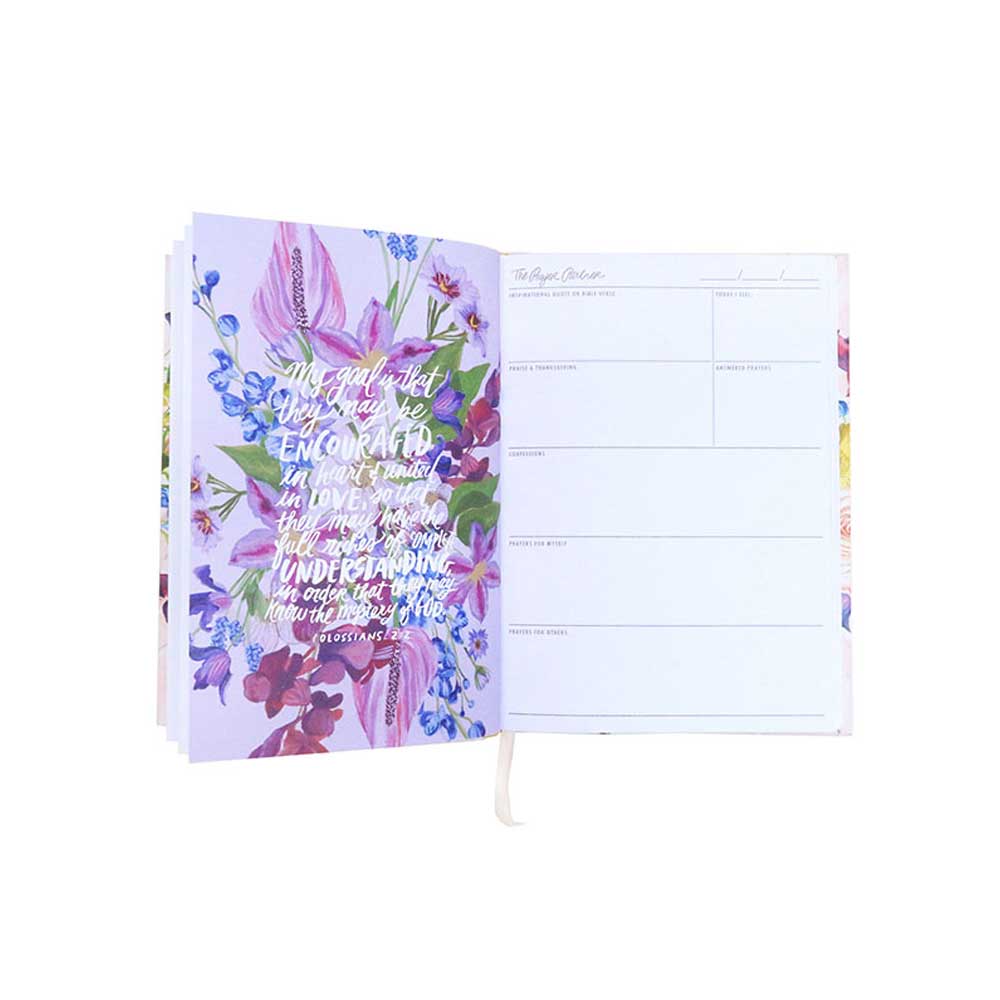 My goal is that
they may be
ENCOURAGED
in heart & united
in LOVE, so that
they may have the
full riches of COMPLETE
UNDERSTANDING,
in order that they may
know the mystery of GOD.
COLOSSIANS 2:2
The Prayer Partner
/ /
INSPIRATIONAL QUOTE OR BIBLE VERSE
TODAY I FEEL:
PRAISE & THANKSGIVING
ANSWERED PRAYERS
CONFESSIONS
PRAYERS FOR MYSELF
PRAYERS FOR OTHERS